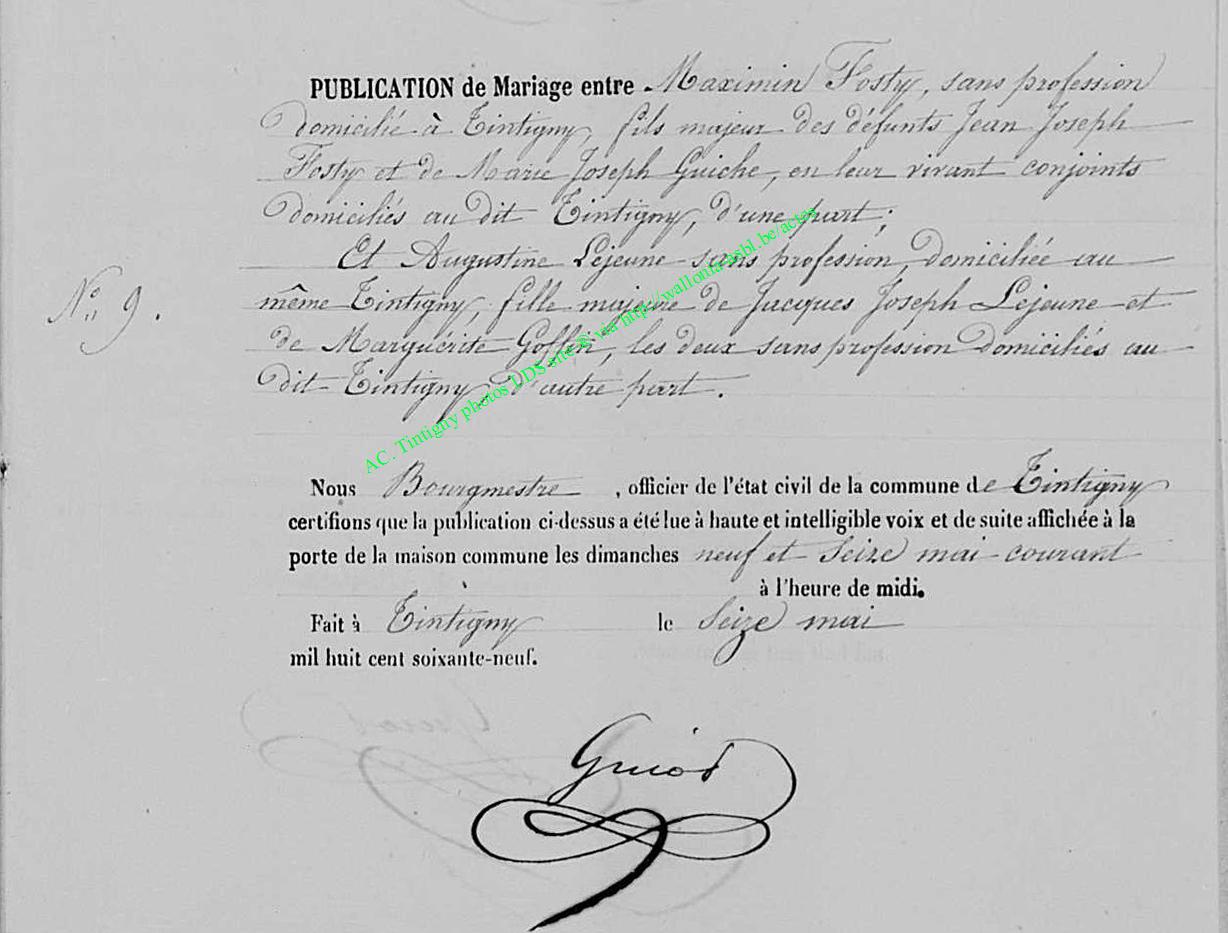 PUBLICATION de Mariage entre Maximin Fosty, sans profession
domicilié à Tintigny, fils majeur des défunts Jean Joseph
Fosty et de Marie Joseph Guiche, en leur vivant conjoints
domiciliés au dit Tintigny, d'une part;
Et Augustine Lejeune sans profession, domiciliée au
N° 9.
même Tintigny, fille majeure de Jacques Joseph Lejeune et
de Marguérite Goffin, les deux sans profession domiciliés au
dit Tintigny, d'autre part.
AC. Tintigny photos LDS site © via http://wallonia-asbl.be/actes
Nous Bourgmestre, officier de l'état civil de la commune de Tintigny
certifions que la publication ci-dessus a été lue à haute et intelligible voix et de suite affichée à la
porte de la maison commune les dimanches neuf et seize mai courant
à l'heure de midi.
Fait à Tintigny le Seize mai
mil huit cent soixante-neuf.